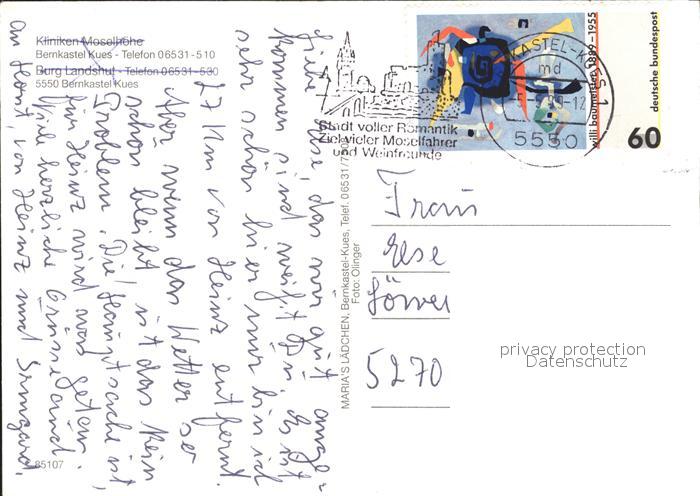 Kliniken Moselhöhe
Bernkastel Kues - Telefon 06531-510
Burg Landshut - Telefon 06531-530
5550 Bernkastel Kues
Liebe das wir gut ange-
kommen sind weißt Du. Es ist
sehr schön hier nur bin ich
27 Km von Heinz entfernt.
Aber wenn das Wetter so
schön bleibt ist das kein
Problem. Die Hauptsache ist,
für Heinz wird was getan.
Viele herzliche Grüsse und
von Heinz und Irmgard.
85107
MARIA'S LÄDCHEN, Bernkastel-Kues, Telef. 06531/
Foto: Olinger
Stadt voller Romantik
Ziel vieler Moselfahrer
und Weinfreunde
KASTEL-KUES 1
md
-12
5550
willi baumeister 1889-1955
deutsche bundespost
60
Frau
5270
privacy protection
Datenschutz